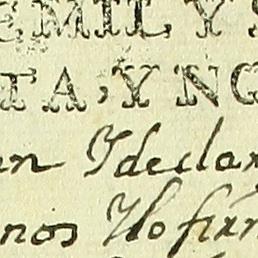 EMILYS
TA,YNG
an Ideclar
nos Yo firm